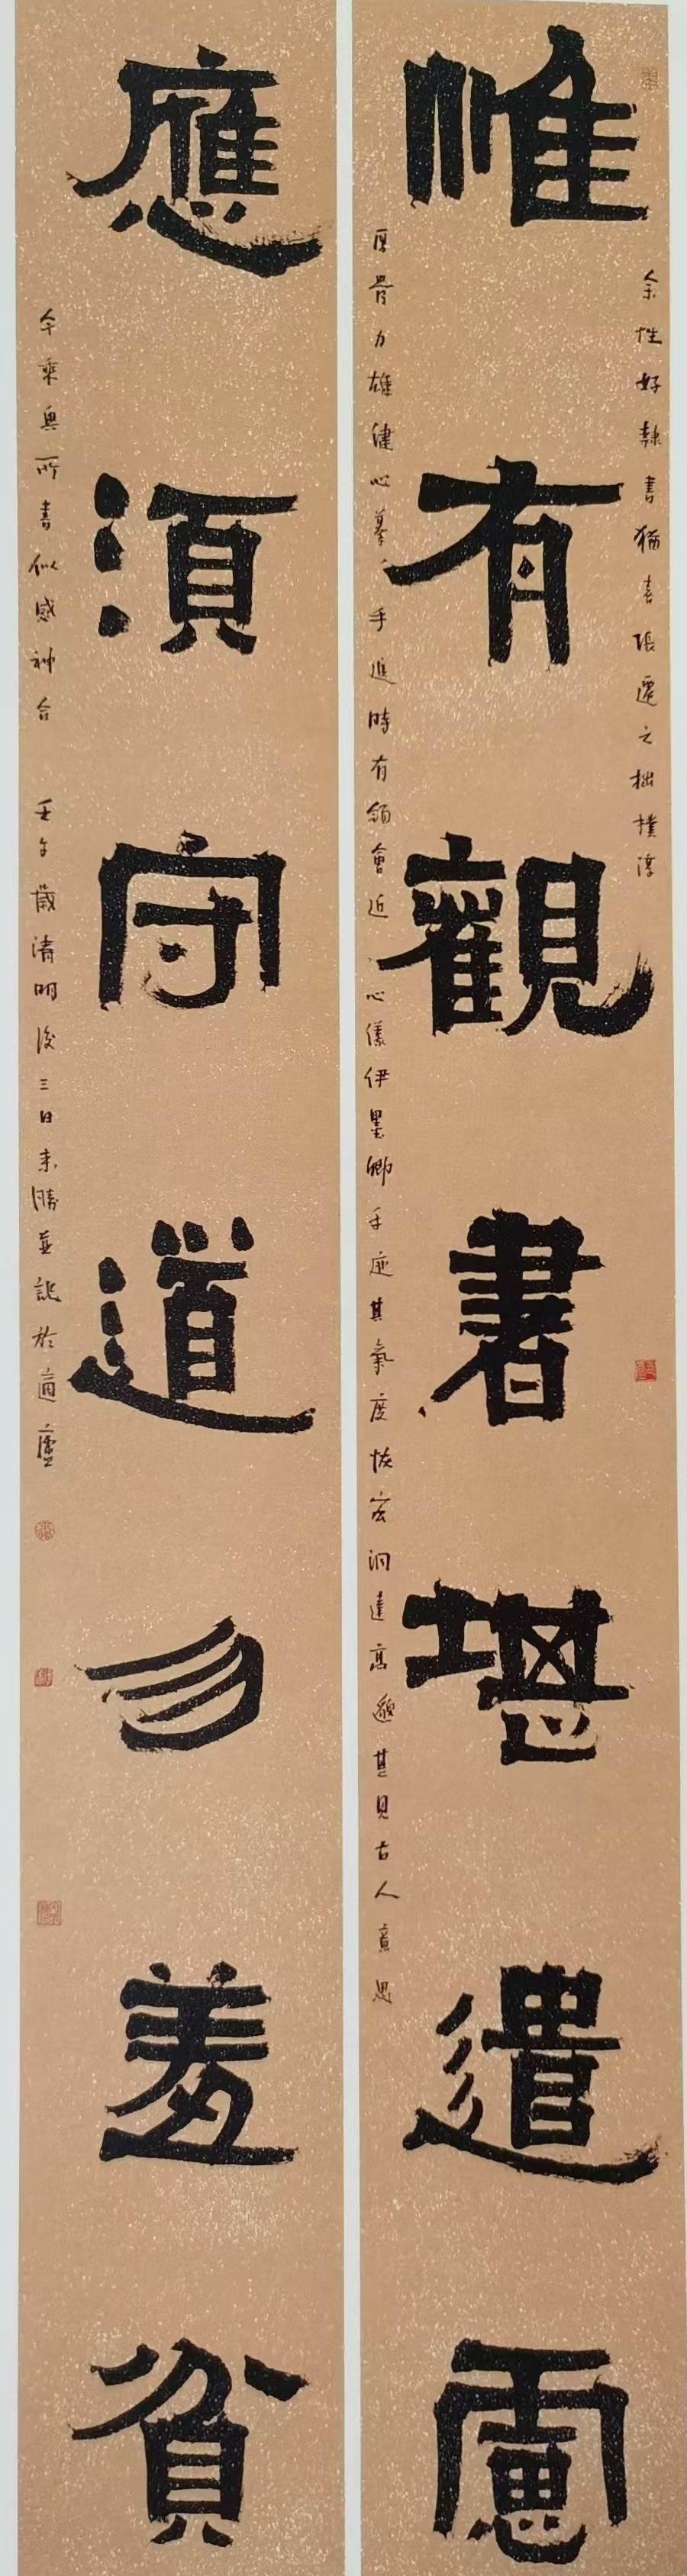 惟有觀書堪遣慮
余性好隸書猶喜張遷之拙樸渾
厚骨力雄健心摹手追時有領會近心儀伊墨卿手迹其氣度恢宏洞達高邈甚見古人意思
應須守道勿羞貧
乘興所書似感神合 壬午歲清明後三日來勝並識於適廬